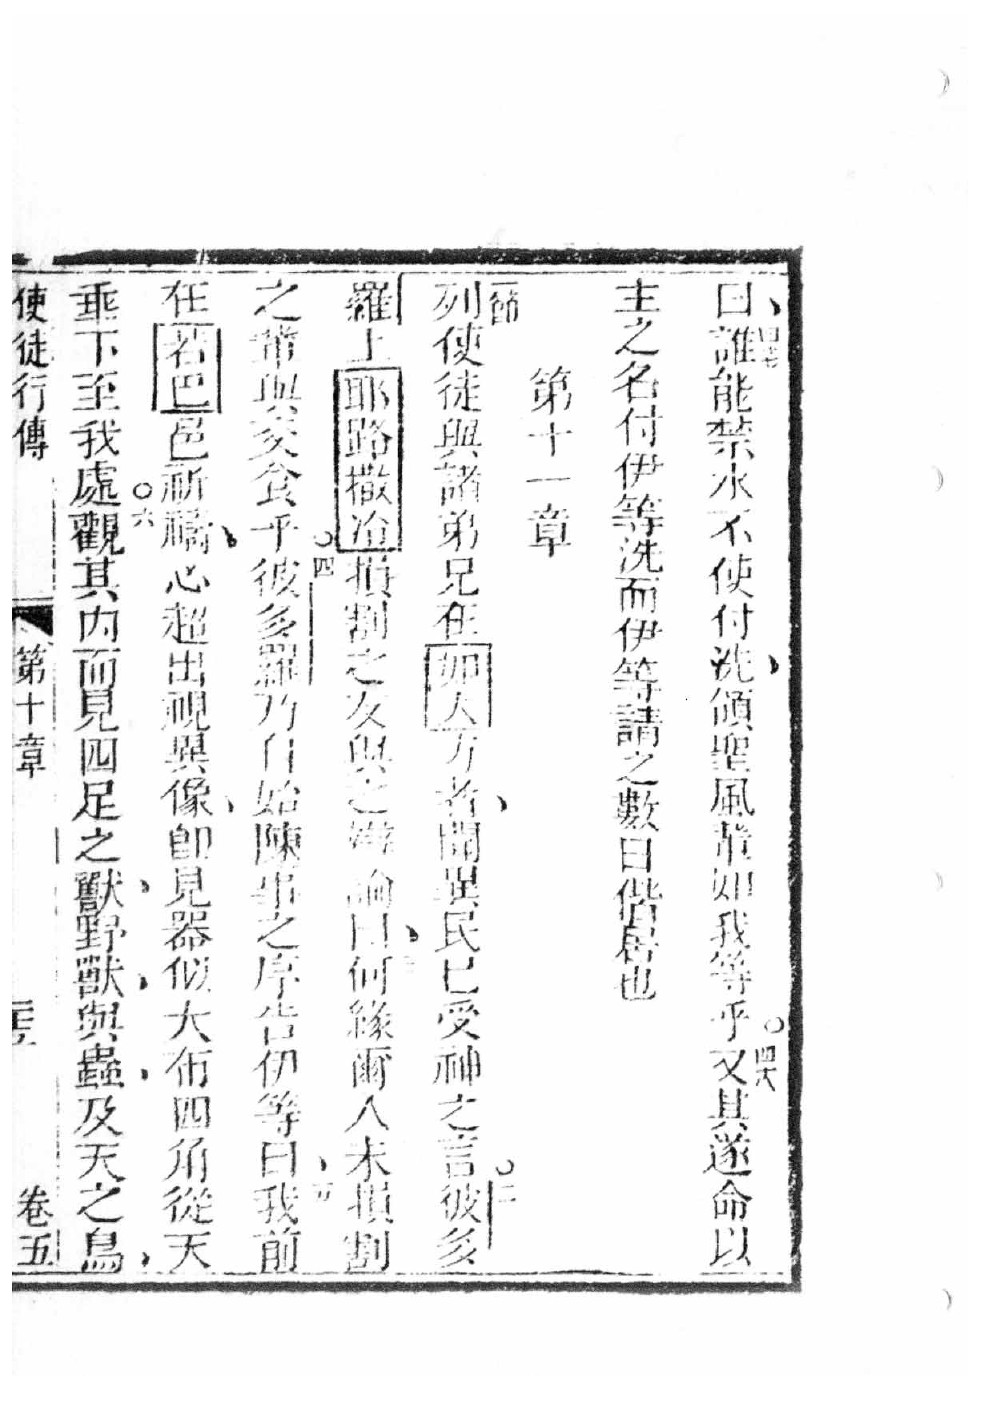 曰誰能禁水不使付洗領聖風輩如我等乎又其遂命以
四七
四八
主之名付伊等洗而伊等請之數日偕居也
第十一章
一節
列使徒與諸弟兄在如大方者聞異民已受神之言彼多
二
羅上耶路撒冶損割之友與之辯論曰何緣爾入未損割
三
之輩與亥食乎彼多羅乃自始陳事之序告伊等曰我前
四
五
在若巴邑祈禱心超出視異像卽見器似大布四角從天
垂下至我處觀其内而見四足之獸野獸與蟲及天之鳥
六
使徒行傳
第十章
卷五